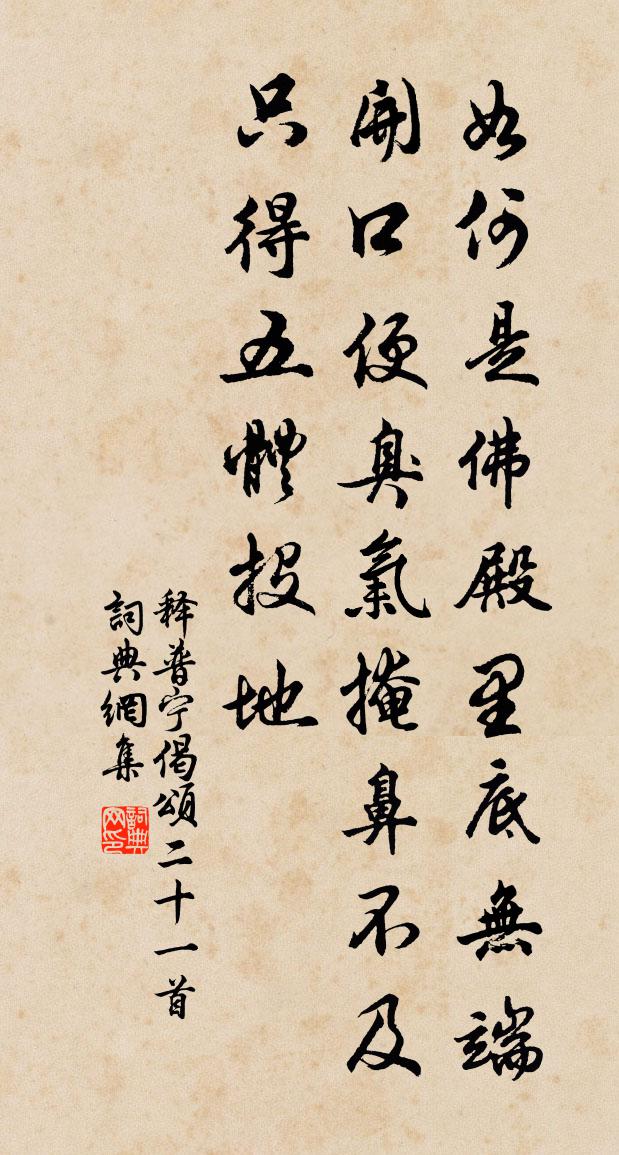 如何是佛殿里底無端
開口便臭氣掩鼻不及
只得五體投地
释普宁偈頌二十一首
詞典網集
詞典網印